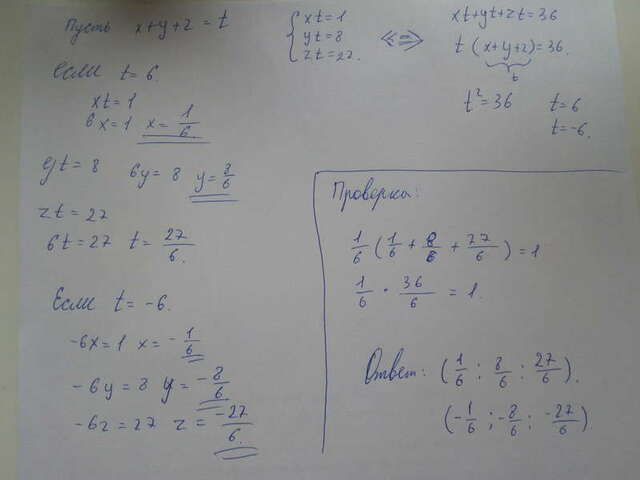 Пусть x+y+z = t
{ xt=1
yt=8
zt=27.
⟺
xt+yt+zt=36
t(x+y+z)=36.
t
t²=36 t=6
t=-6.
Если t=6.
xt=1
6x=1 x=1/6.
yt=8 6y=8 y=8/6
zt=27
6t=27 t=27/6.
Если t=-6.
-6x=1 x=-1/6
-6y=8 y=-8/6
-6z=27 z=-27/6.
Проверка:
1/6(1/6+8/6+27/6)=1
1/6·36/6=1.
Ответ: (1/6; 8/6; 27/6).
(-1/6; -8/6; -27/6).